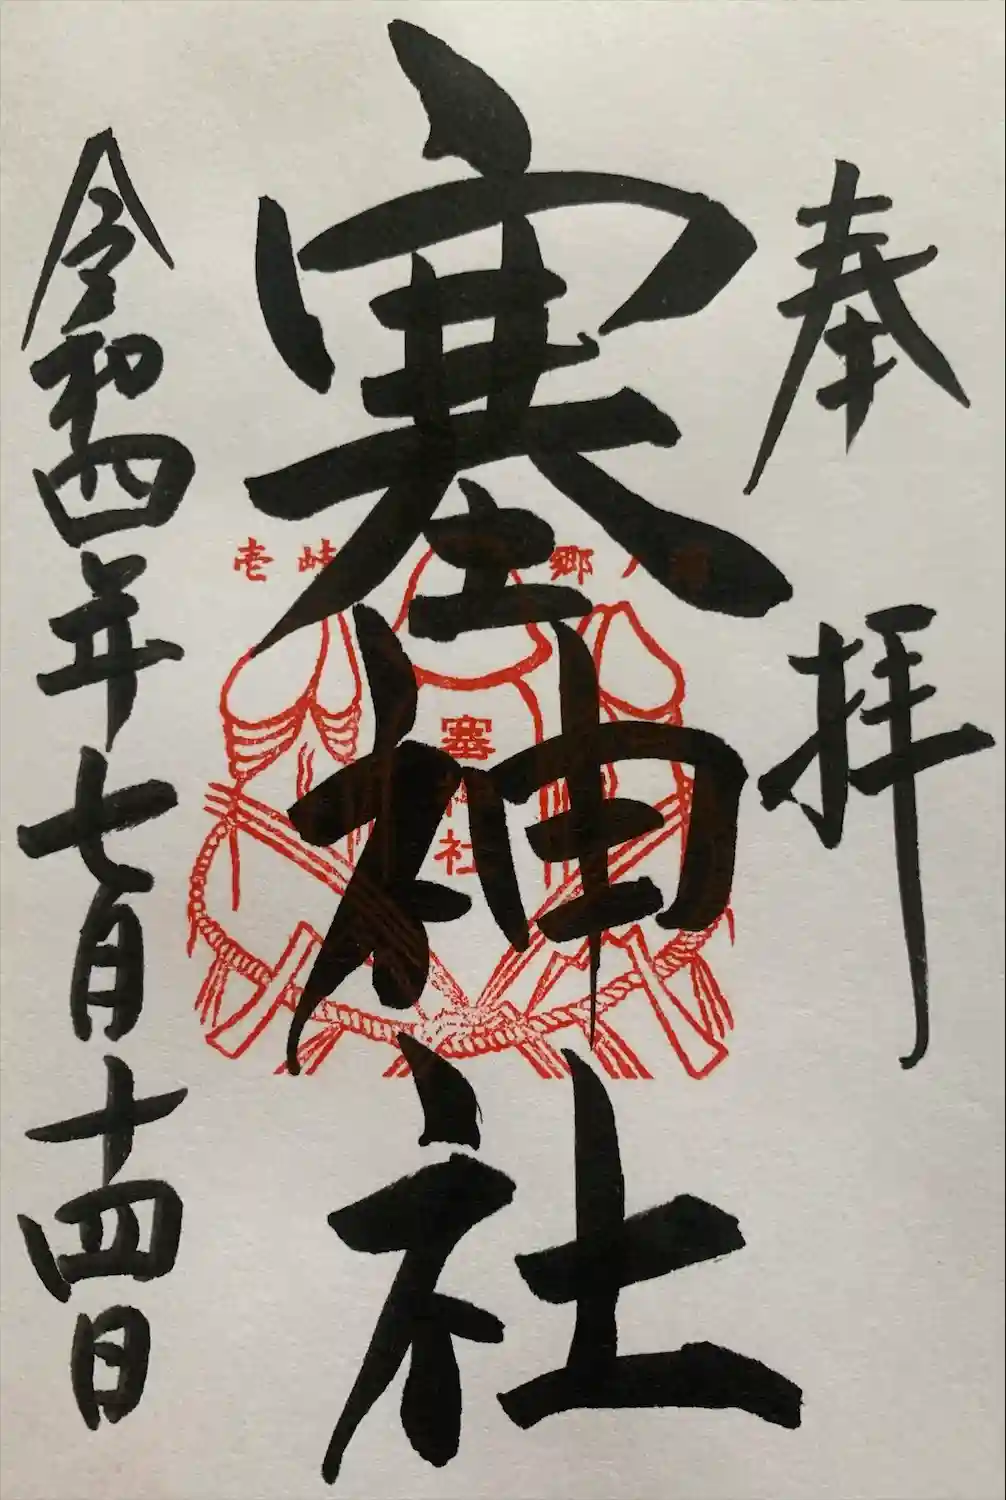 奉拝
塞神社
令和四年七月十四日
壱岐 郷ノ浦
塞神社